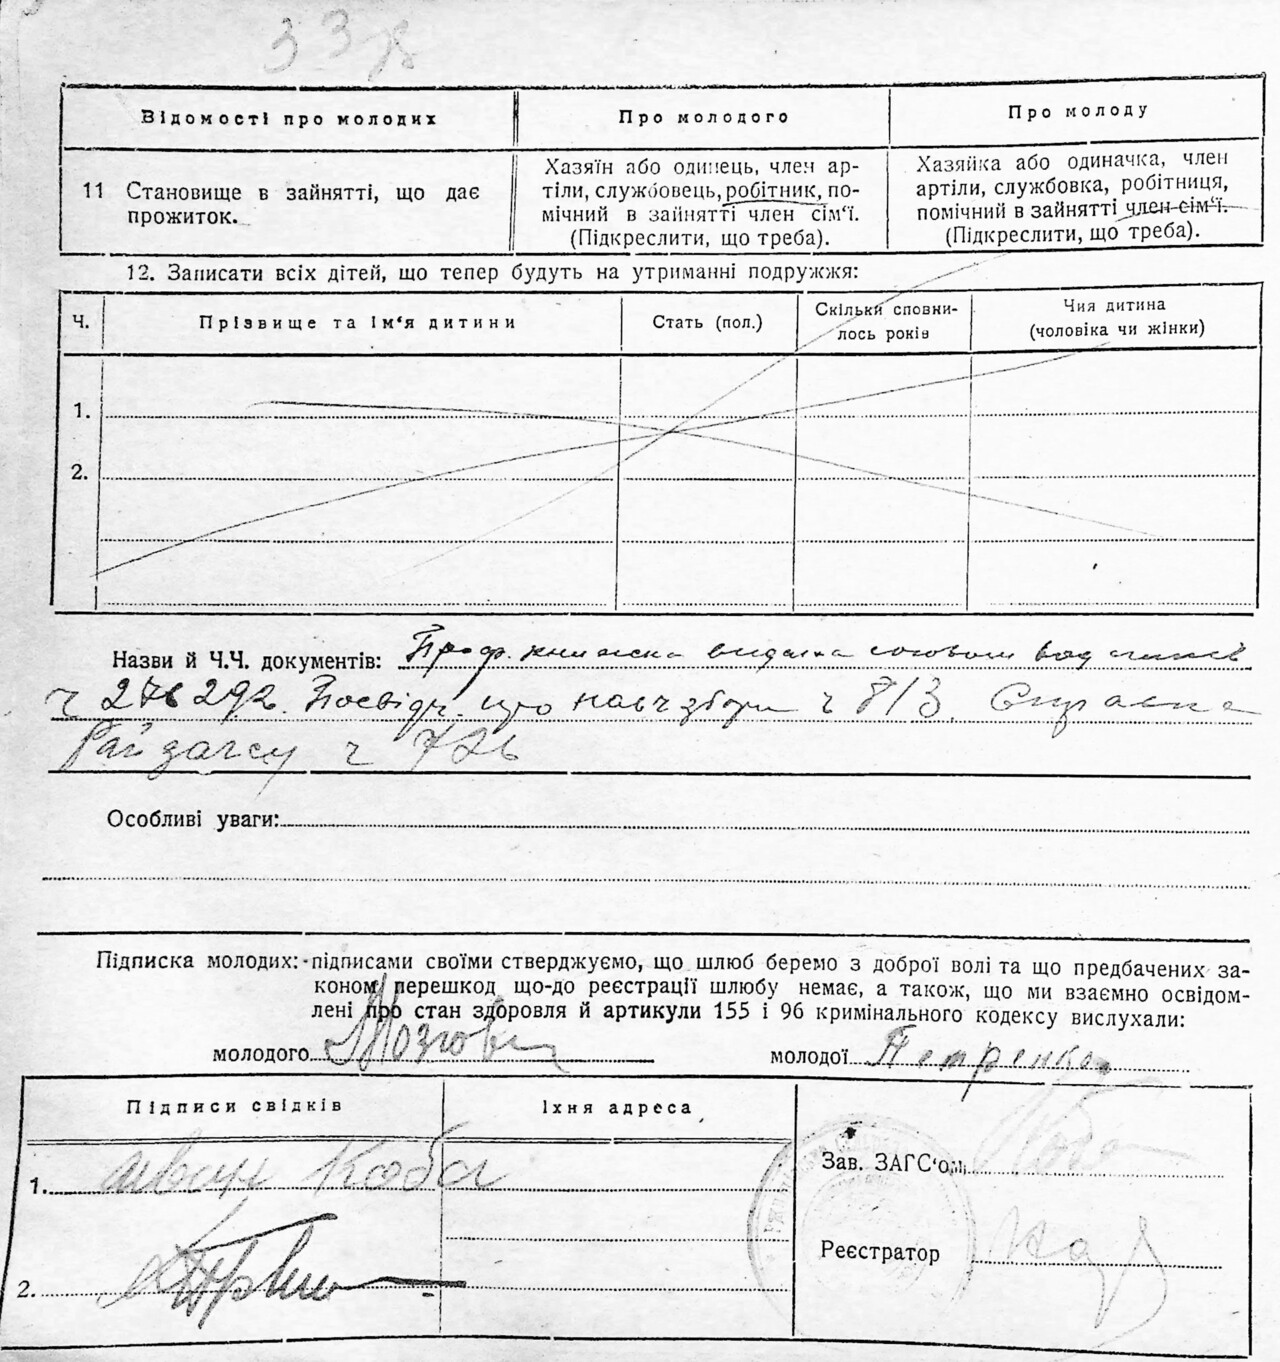 33
Відомості про молодих
Про молодого
Про молоду
11 Становище в зайнятті, що дає
прожиток.
Хазяїн або одинець, член ар-
тіли, службовець, робітник, по-
мічний в зайнятті член сім'ї.
(Підкреслити, що треба).
Хазяйка або одиначка, член
артіли, службовка, робітниця,
помічний в зайнятті член сім'ї.
(Підкреслити, що треба).
12. Записати всіх дітей, що тепер будуть на утриманні подружжя:
Ч.
Прізвище та ім'я дитини
Стать (пол.)
Скільки сповни-
лось років
Чия дитина
(чоловіка чи жінки)
1.
2.
Назви й Ч.Ч. документів: Проф. книжка видана союзом
ч 276292. Посвідч. про ч 813. Справка
Райзагсу ч 726
Особливі уваги:
Підписка молодих: підписами своїми стверджуємо, що шлюб беремо з доброї волі та що предбачених за-
коном перешкод що-до реєстрації шлюбу немає, а також, що ми взаємно освідом-
лені про стан здоровля й артикули 155 і 96 кримінального кодексу вислухали:
молодого Мозгов
молодої Петренко
Підписи свідків
Їхня адреса
1. Иван Коба
2.
Зав. ЗАГС'ом
Реєстратор